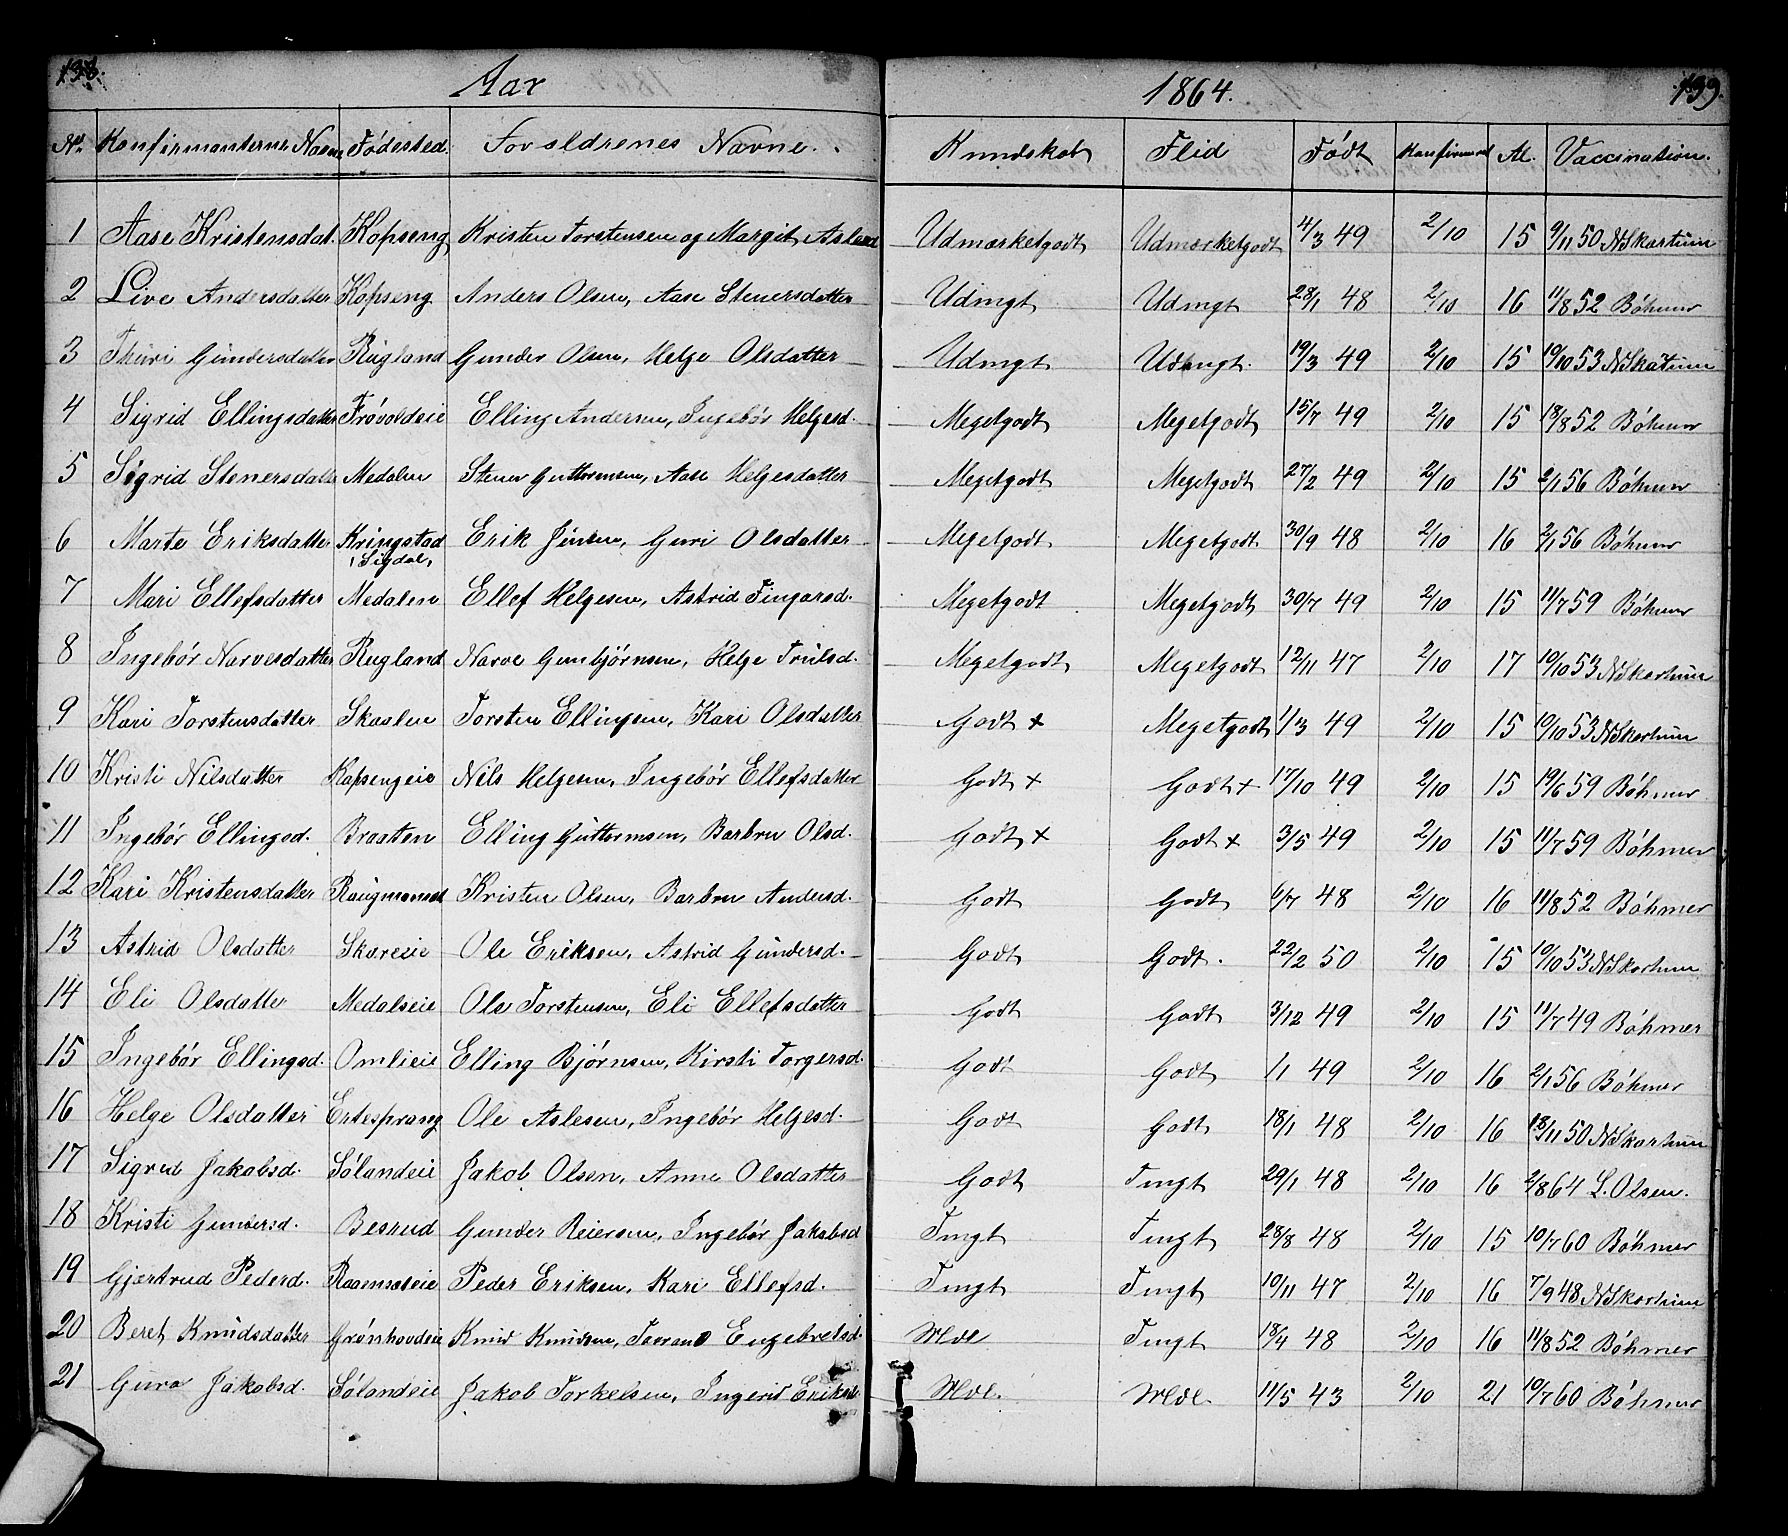 138.
Aar
1864.
139.
No Konfirmanternes Navne Fódested. Forældrenes Navne. Kundskab Flid Födt Konfirmeret Al. Vaccination.
1 Aase Kristensdat. Kopseng Kristen Torstensen og Margit Aslesd Udmærketgodt Udmærketgodt 4/3 49 2/10 15 9/11 50 N Skartum
2 Live Andersdatter Kopseng Anders Olsen, Aase Stenersdatter Udmgt Udmgt 28/1 48 2/10 16 11/8 52 Bóhmer
3 Thúri Gúndersdatter Rúgland Gunder Olsen, Helge Olsdatter Udmgt Udmgt. 19/3 49 2/10 15 10/10 53 N Skartum
4 Sigrid Ellingsdatter Frövoldeie Elling Andersen, Ingebór Helgesd. Megetgodt Megetgodt 15/7 49 2/10 15 18/8 52 Bóhmer
5 Sigrid Stenersdatter Medalen Stener Guttormsen, Aase Helgesdatter Megetgodt Megetgodt 27/2 49 2/10 15 2/1 56 Bóhmer
6 Marte Eriksdatter Kringstad Erik Jensen, Guri Olsdatter Megetgodt Megetgodt 30/9 48 2/10 16 2/1 56 Bóhmer
i Sigdal,
7 Mari Ellefsdatter Medalen Ellef Helgesen, Astrid Fingarsd. Megetgodt Megetgodt 30/7 49 2/10 15 11/7 59 Bóhmer
8 Ingebór Narvesdatter Rugland Narve Gunbjórnsen, Helge Trúlsd. Megetgodt Megetgodt 12/11 47 2/10 17 10/10 53 N Skartum
9 Kari Torstensdatter Skaalen Torsten Ellingsen, Kari Olsdatter Godt + Megetgodt 1/3 49 2/10 15 10/10 53 N Skartum
10 Kristi Nilsdatter Kopsengeie Nils Helgesen, Ingebór Ellefsdatter Godt + Godt + 17/10 49 2/10 15 19/6 59 Bóhmer
11 Ingebór Ellingsd. Braaten Elling Gúttormsen, Barbru Olsd. Godt + Godt + 3/5 49 2/10 15 11/7 59 Bóhmer
12 Kari Kristensdatter Kristen Olsen, Barbru Andersd. Godt Godt 6/7 48 2/10 16 11/8 52 Bóhmer
13 Astrid Olsdatter Skareeie Ole Eriksen, Astrid Gúndersd. Godt Godt. 22/2 50 2/10 15 10/10 53 N Skartum
14 Eli Olsdatter Medalseie Ole Torstensen, Eli Ellefsdatter Godt Godt 3/12 49 2/10 15 11/7 49 Bóhmer
15 Ingebór Ellingsd. Omlieie Elling Bjórnsen, Kirsti Torgersd. Godt Godt 1/1 49 2/10 16 2/1 56 Bóhmer
16 Helge Olsdatter Ertesprang Ole Aslesen, Ingebór Helgesd. Godt Godt 18/1 48 2/10 16 18/11 50 N Skartum
17 Sigrid Jakobsd. Sólandeie Jakob Olsen, Anne Olsdatter Godt Tmgt 29/1 48 2/10 16 2/8 64 L. Olsen.
18 Kristi Gundersd. Besrud Gunder Reiersen, Ingebór Jakobsd Tmgt Tmgt 28/8 48 2/10 15 10/7 60 Bóhmer
19 Gjærtrud Pedersd. Peder Eriksen, Kari Ellefsd. Tmgt Tmgt 10/11 47 2/10 16 7/9 48 N Skartum
20 Beret Knudsdatter Grónhovdeie Knud Knudsen, Engebretsd. Mdl Tmgt 18/4 48 2/10 16 11/8 52 Bóhmer
21 Guro Jakobsd. Sólandeie Jakob Torkelsen, Ingerid Eriksd. Mdl. Mdl. 11/5 43 2/10 21 10/7 60 Bóhmer